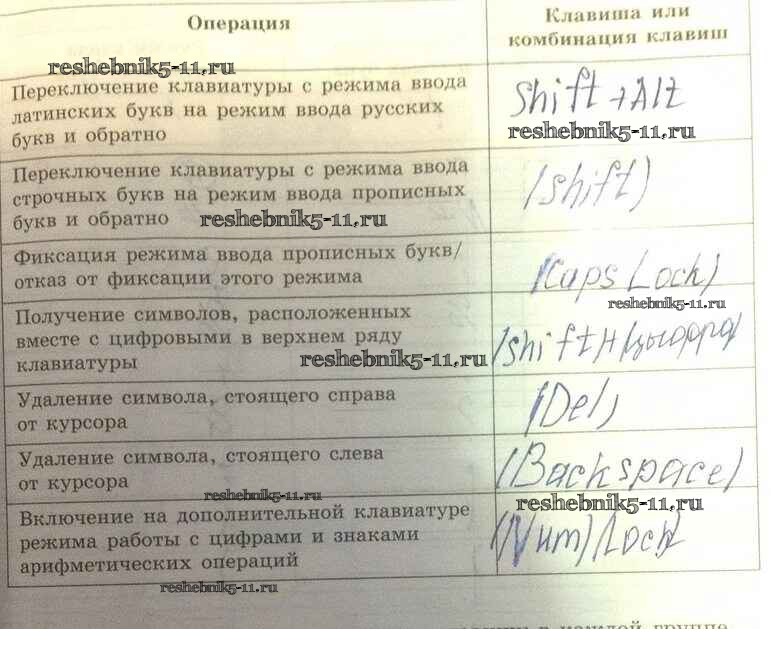 Операция
Клавиша или
комбинация клавиш
reshebnik5-11.ru
Переключение клавиатуры с режима ввода
латинских букв на режим ввода русских
букв и обратно
Shift + Alt
reshebnik5-11.ru
Переключение клавиатуры с режима ввода
строчных букв на режим ввода прописных
букв и обратно
reshebnik5-11.ru
(shift)
Фиксация режима ввода прописных букв/
отказ от фиксации этого режима
(Caps Lock)
reshebnik5-11.ru
Получение символов, расположенных
вместе с цифровыми в верхнем ряду
клавиатуры
reshebnik5-11.ru
(shift)+
Удаление символа, стоящего справа
от курсора
(Del)
Удаление символа, стоящего слева
от курсора
(Backspace)
reshebnik5-11.ru
reshebnik5-11.ru
Включение на дополнительной клавиатуре
режима работы с цифрами и знаками
арифметических операций
(Num) (Lock)
reshebnik5-11.ru
в каждой группе